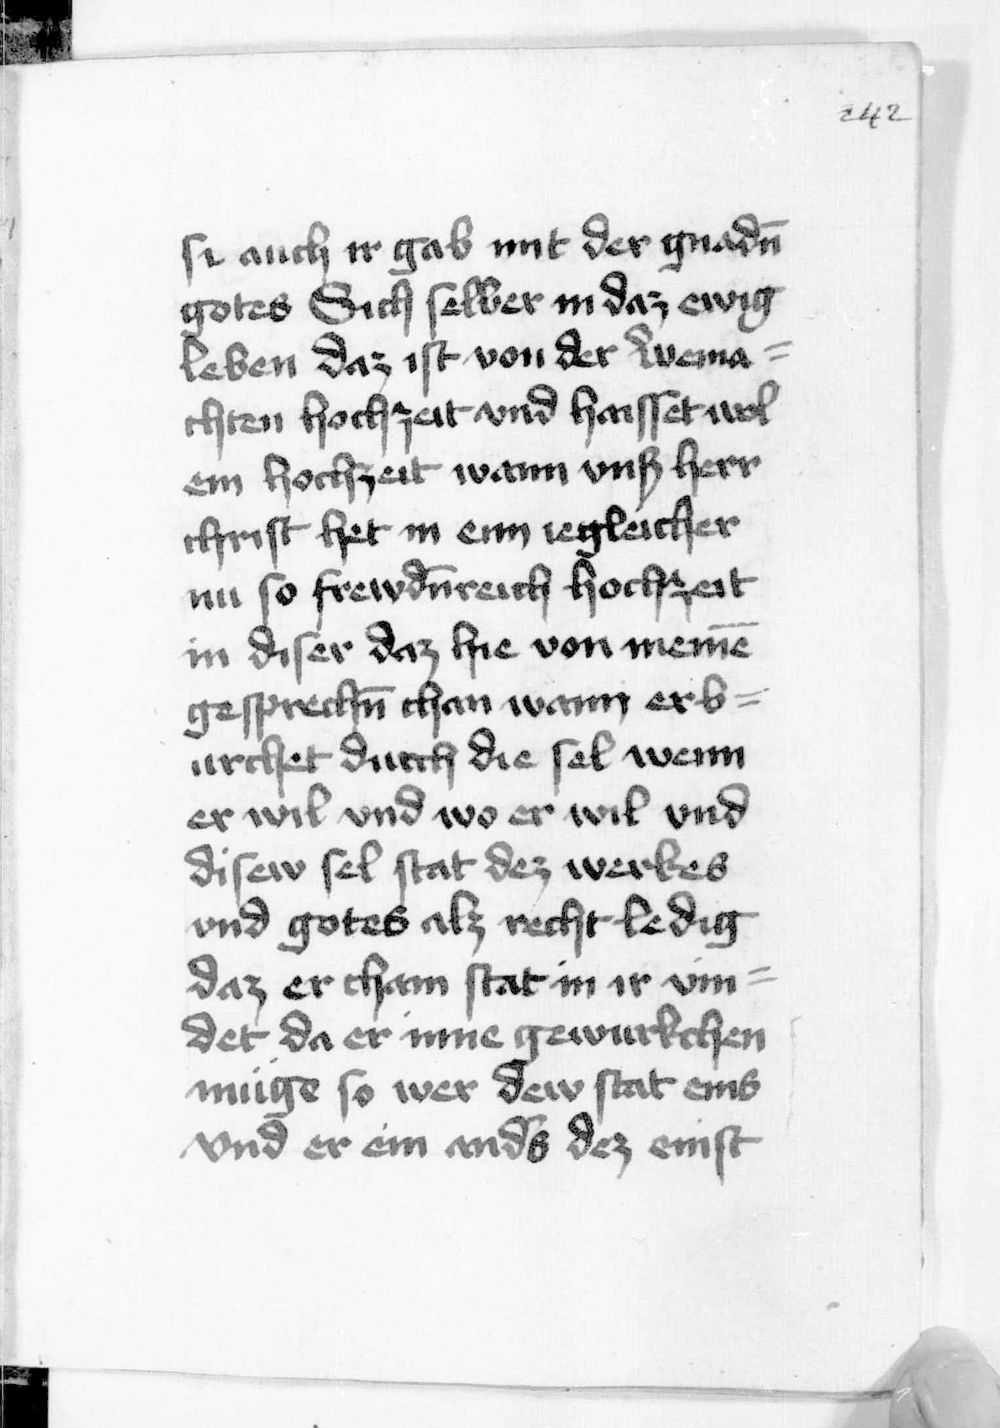 242
si auch ir gab mit der gnadn̄
gotes Sich selber in daz ewig
leben daz ist von der
chten hochzeit vnd haisset wol
ein hochzeit wann vnß herr
christ het in einn iegleicher
nu so frewdn̄reich hochzeit
in diser daz hie von niem̄e
gesprechn̄ chan wann er b=
urchet durch die sel wenn
er wil vnd wo er wil vnd
disew sel stat dez werkes
vnd gotes alz recht ledig
daz er chain stat in ir vin=
det da er inne gewurkchen
müge so wer dew stat eins
vnd er ein anders dez enist